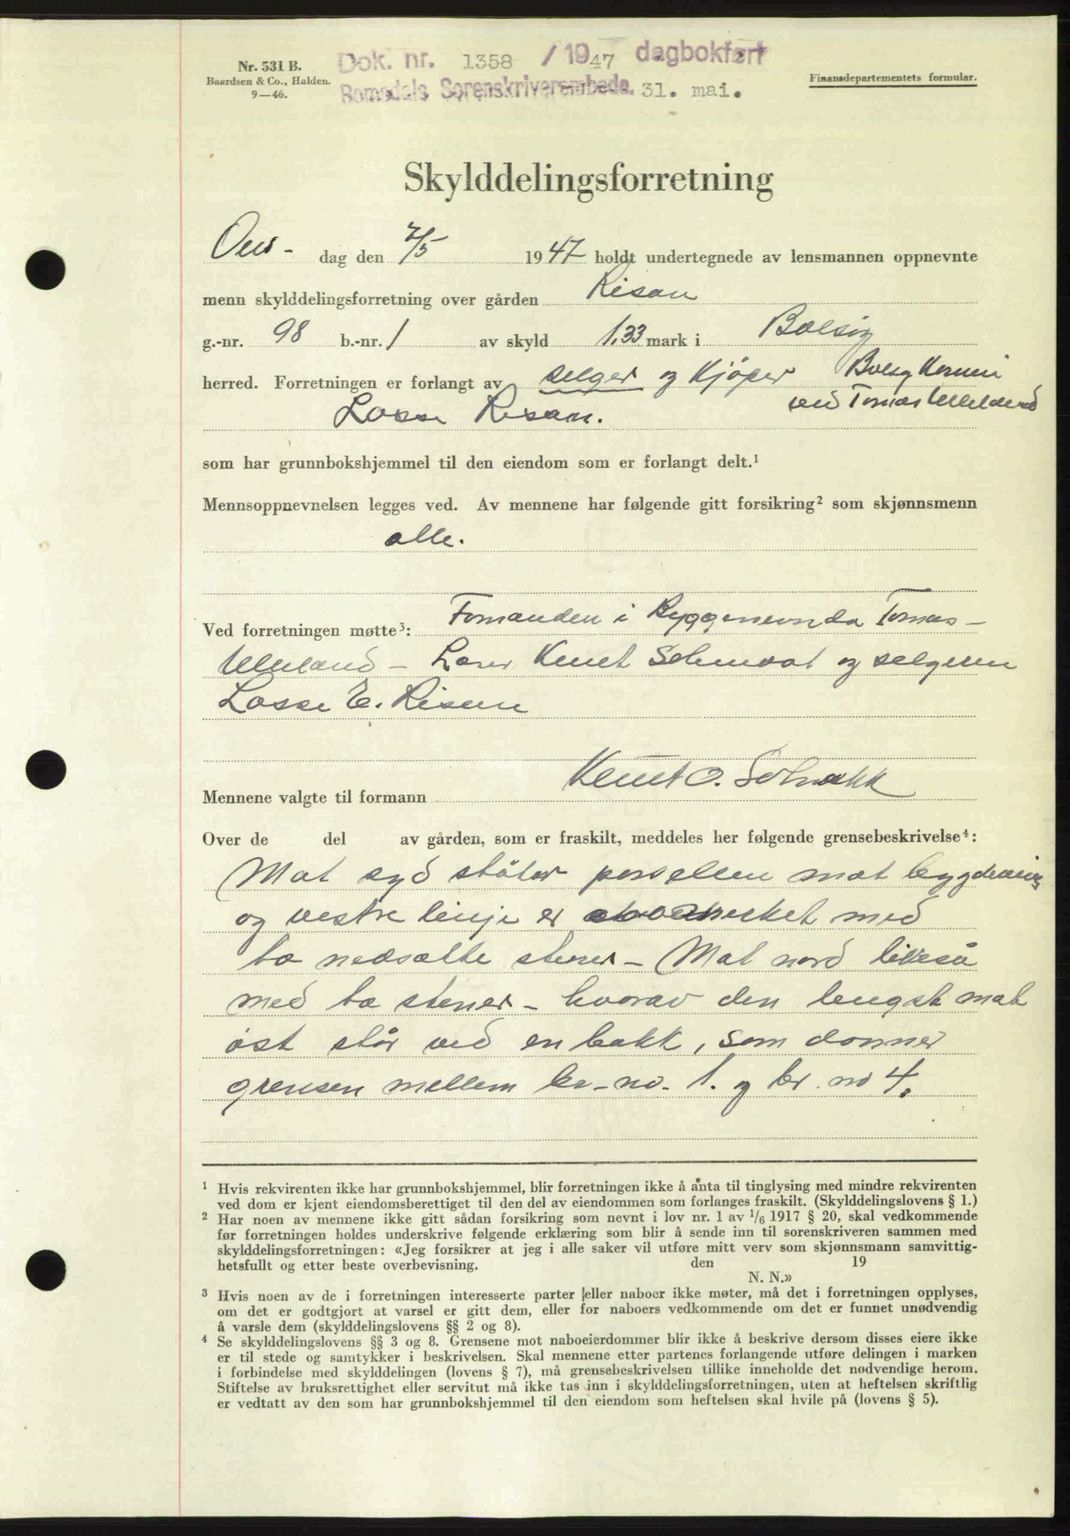 Nr. 531 B.
Baardsen & Co., Halden.
9—46.
Dok. nr. 1358 / 1947 dagbokført
Romsdals Sorenskriverembede. 31. mai.
Finansdepartementets formular.
Skylddelingsforretning
Ons- dag den 7/5 1947 holdt undertegnede av lensmannen oppnevnte
menn skylddelingsforretning over gården Risan
g.-nr. 98 b.-nr. 1 av skyld 1,33 mark i Bolsøy
herred. Forretningen er forlangt av selger og Kjøper
ved Tomas
Lasse Risan.
som har grunnbokshjemmel til den eiendom som er forlangt delt.¹
Mennsoppnevnelsen legges ved. Av mennene har følgende gitt forsikring² som skjønnsmenn
alle.
Ved forretningen møtte³: Formanden i Byggenevnda Tomas
- Knut og selgeren
Lasse E. Risan
Mennene valgte til formann Knut O.
Over de del av gården, som er fraskilt, meddeles her følgende grensebeskrivelse⁴:
Mot syd støter parsellen mot bygdeveig
og vestre linje er med
to nedsatte stener - Mot nord likeså
med to stener - hvorav den lengst mot
øst står ved en bakk, som danner
grensen mellem br-no. 1. og br. no 4.
¹ Hvis rekvirenten ikke har grunnbokshjemmel, blir forretningen ikke å anta til tinglysing med mindre rekvirenten
ved dom er kjent eiendomsberettiget til den del av eiendommen som forlanges fraskilt. (Skylddelingslovens § 1.)
² Har noen av mennene ikke gitt sådan forsikring som nevnt i lov nr. 1 av 1/6 1917 § 20, skal vedkommende
før forretningen holdes underskrive følgende erklæring som blir å sende inn til sorenskriveren sammen med
skylddelingsforretningen: «Jeg forsikrer at jeg i alle saker vil utføre mitt verv som skjønnsmann samvittig-
hetsfullt og etter beste overbevisning. den 19
N. N.»
³ Hvis noen av de i forretningen interesserte parter eller naboer ikke møter, må det i forretningen opplyses,
om det er godtgjort at varsel er gitt dem, eller for naboers vedkommende om det er funnet unødvendig
å varsle dem (skylddelingslovens §§ 2 og 8).
⁴ Se skylddelingslovens §§ 3 og 8. Grensene mot naboeierdommer blir ikke å beskrive dersom disses eiere ikke
er til stede og samtykker i beskrivelsen. Skal mennene etter partenes forlangende utføre delingen i marken
i forbindelse med skylddelingen (lovens § 7), må grensebeskrivelsen tillike inneholde det nødvendige herom.
Stiftelse av bruksrettighet eller servitut må ikke tas inn i skylddelingsforretningen, uten at heftelsen skriftlig
er vedtatt av den som har grunnbokshjemmel til den eiendom som heftelsen skal hvile på (lovens § 5).